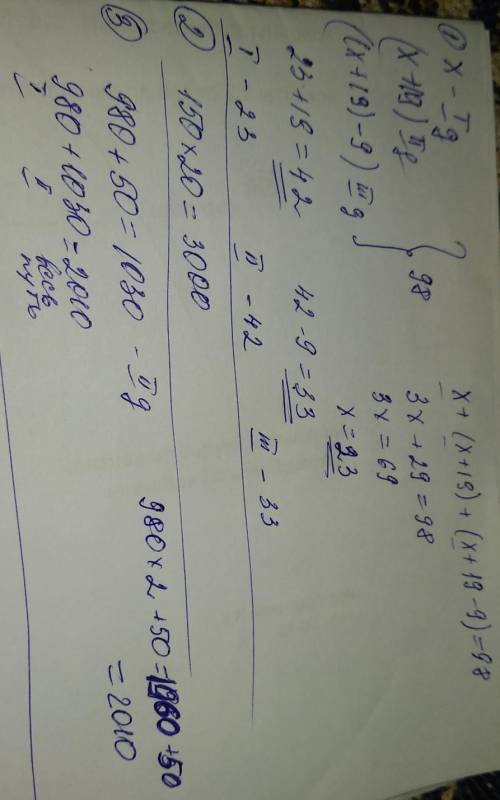 ① x - I g
(x+19) II g
((x+19)-9) III g } 98
x + (x+19) + (x+19-9) = 98
3x + 29 = 98
3x = 69
x = 23
23 + 19 = 42
42 - 9 = 33
I - 23 II - 42 III - 33
② 150 × 20 = 3000
③ 980 + 50 = 1030 - II g
980 + 1030 = 2010
I II весь путь
980 × 2 + 50 = 1960 + 50
= 2010